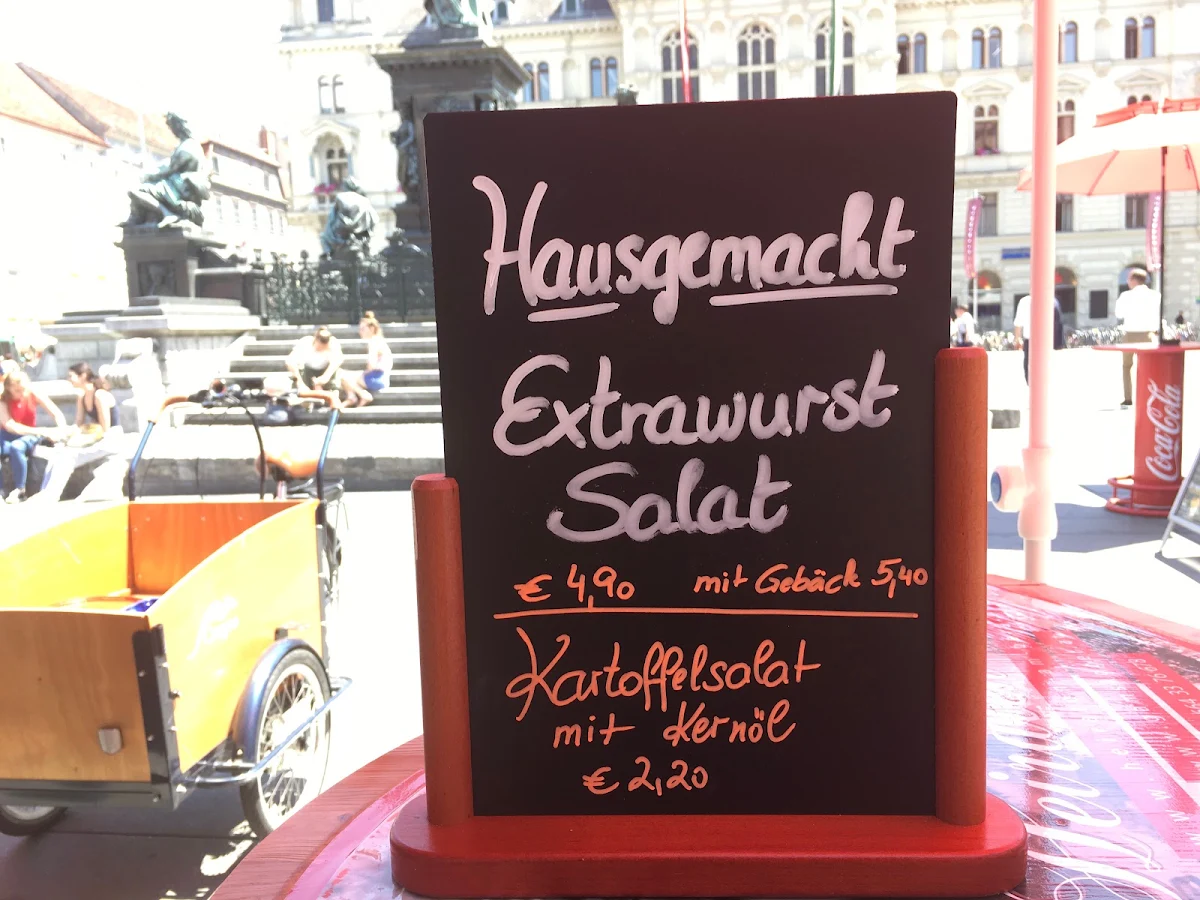 Hausgemacht
Extrawurst
Salat
€ 4,90 mit Gebäck 5,40
Kartoffelsalat
mit Kernöl
€ 2,20
Coca-Cola